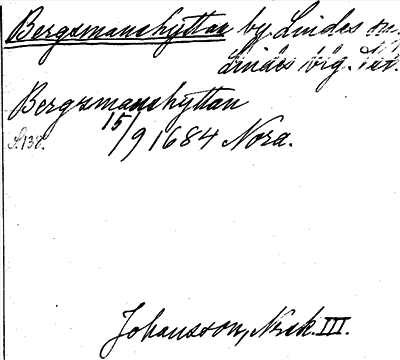 Bergsmanshyttan by, Lindes sn.
Lindes o. Ng. ter.
Bergsmanshyttan
S. 138. 15/9 1684 Nora.
Johansson, Norsk. III.